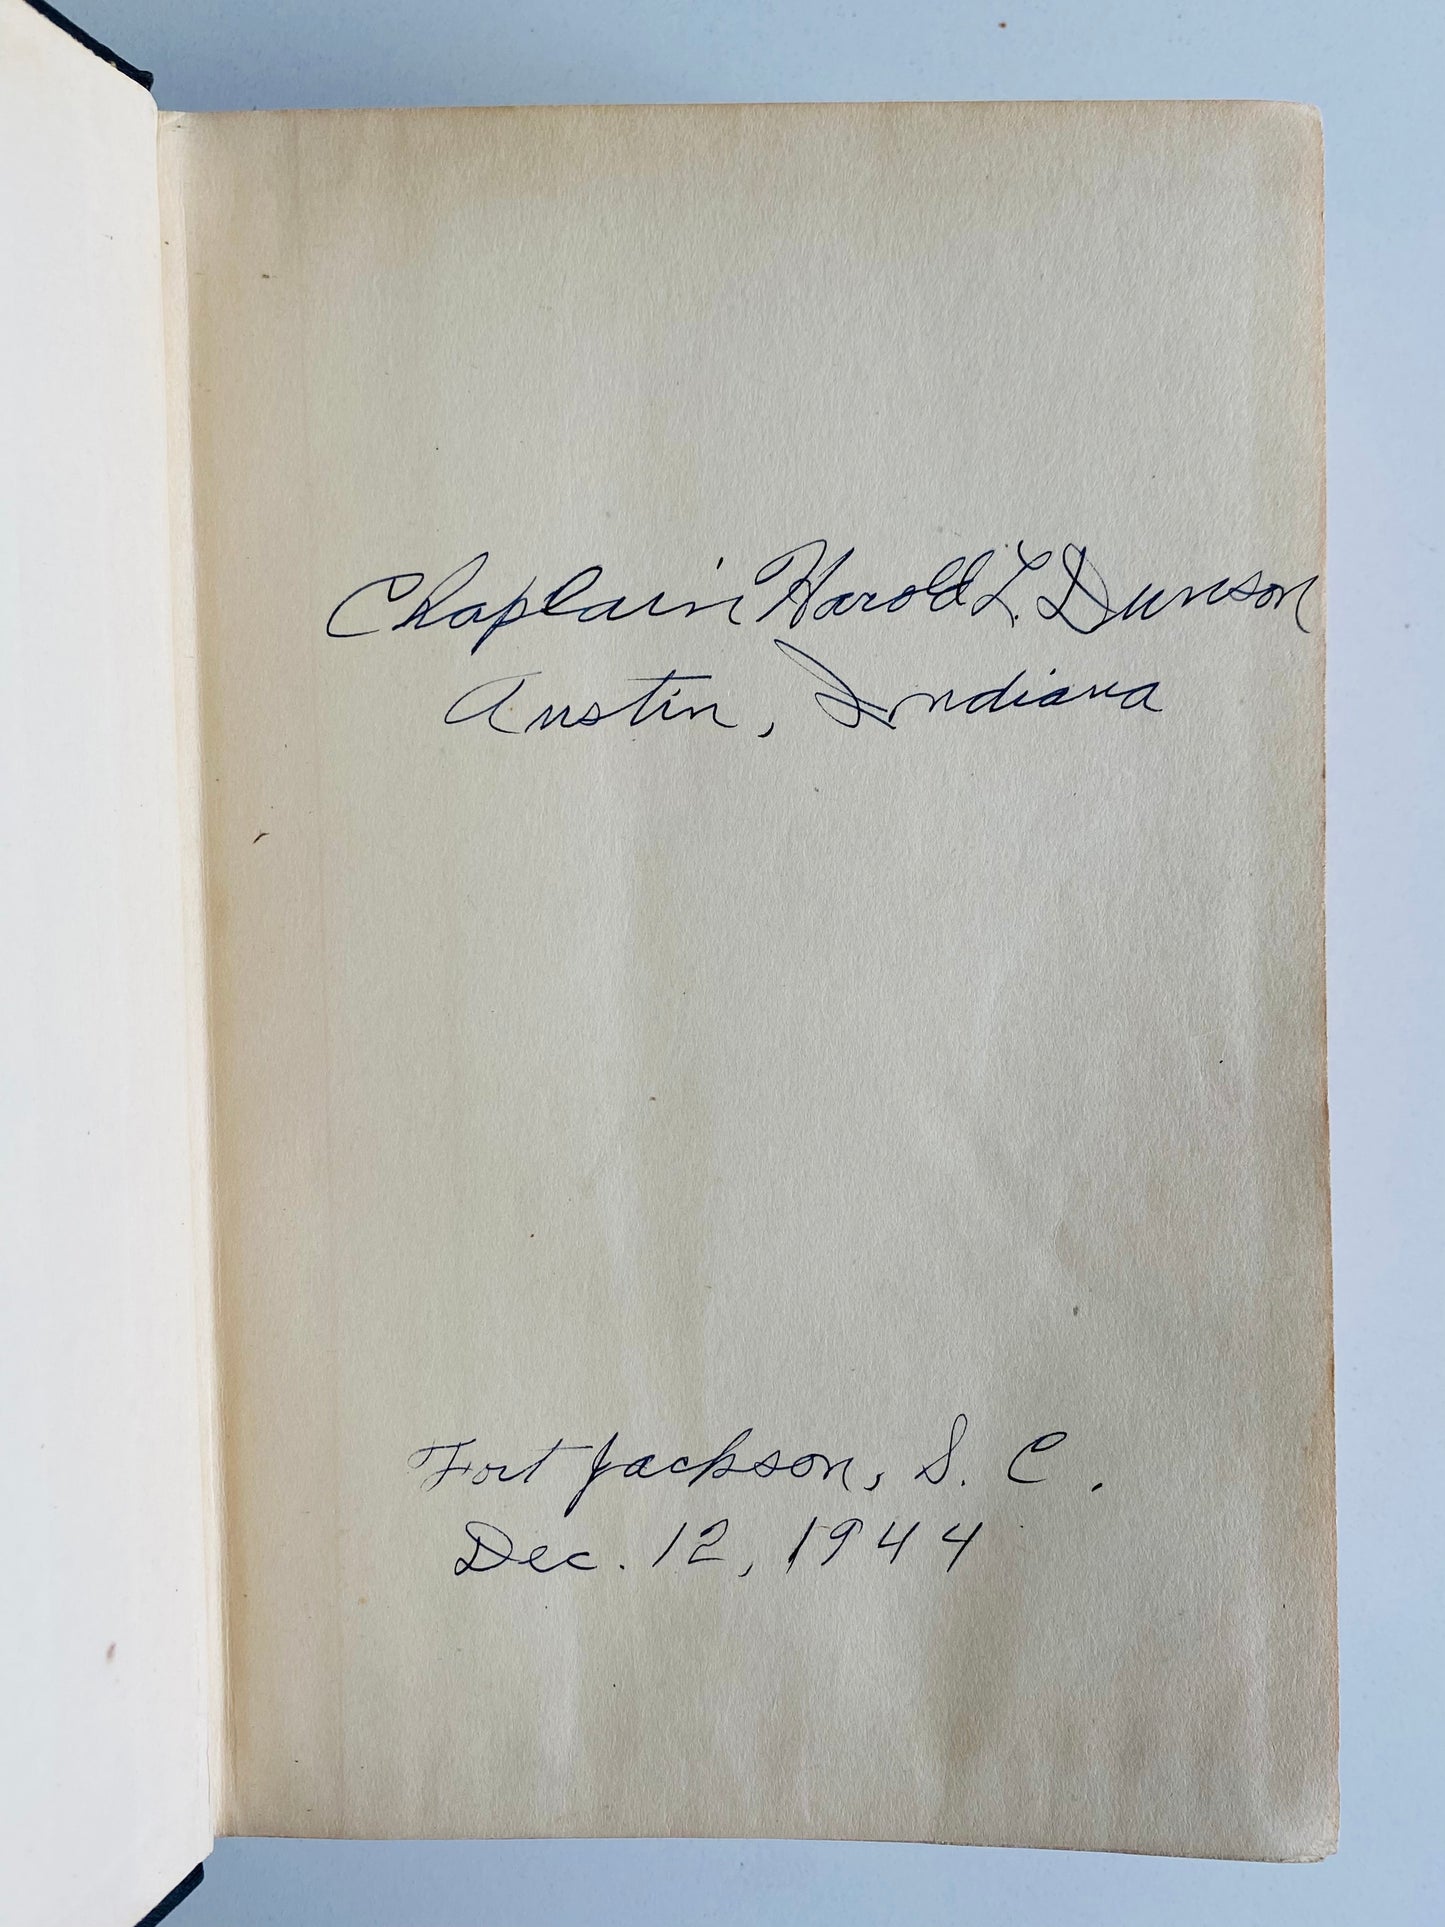 Chaplain Harold L. Dunson
Austin, Indiana
Fort Jackson, S. C.
Dec. 12, 1944